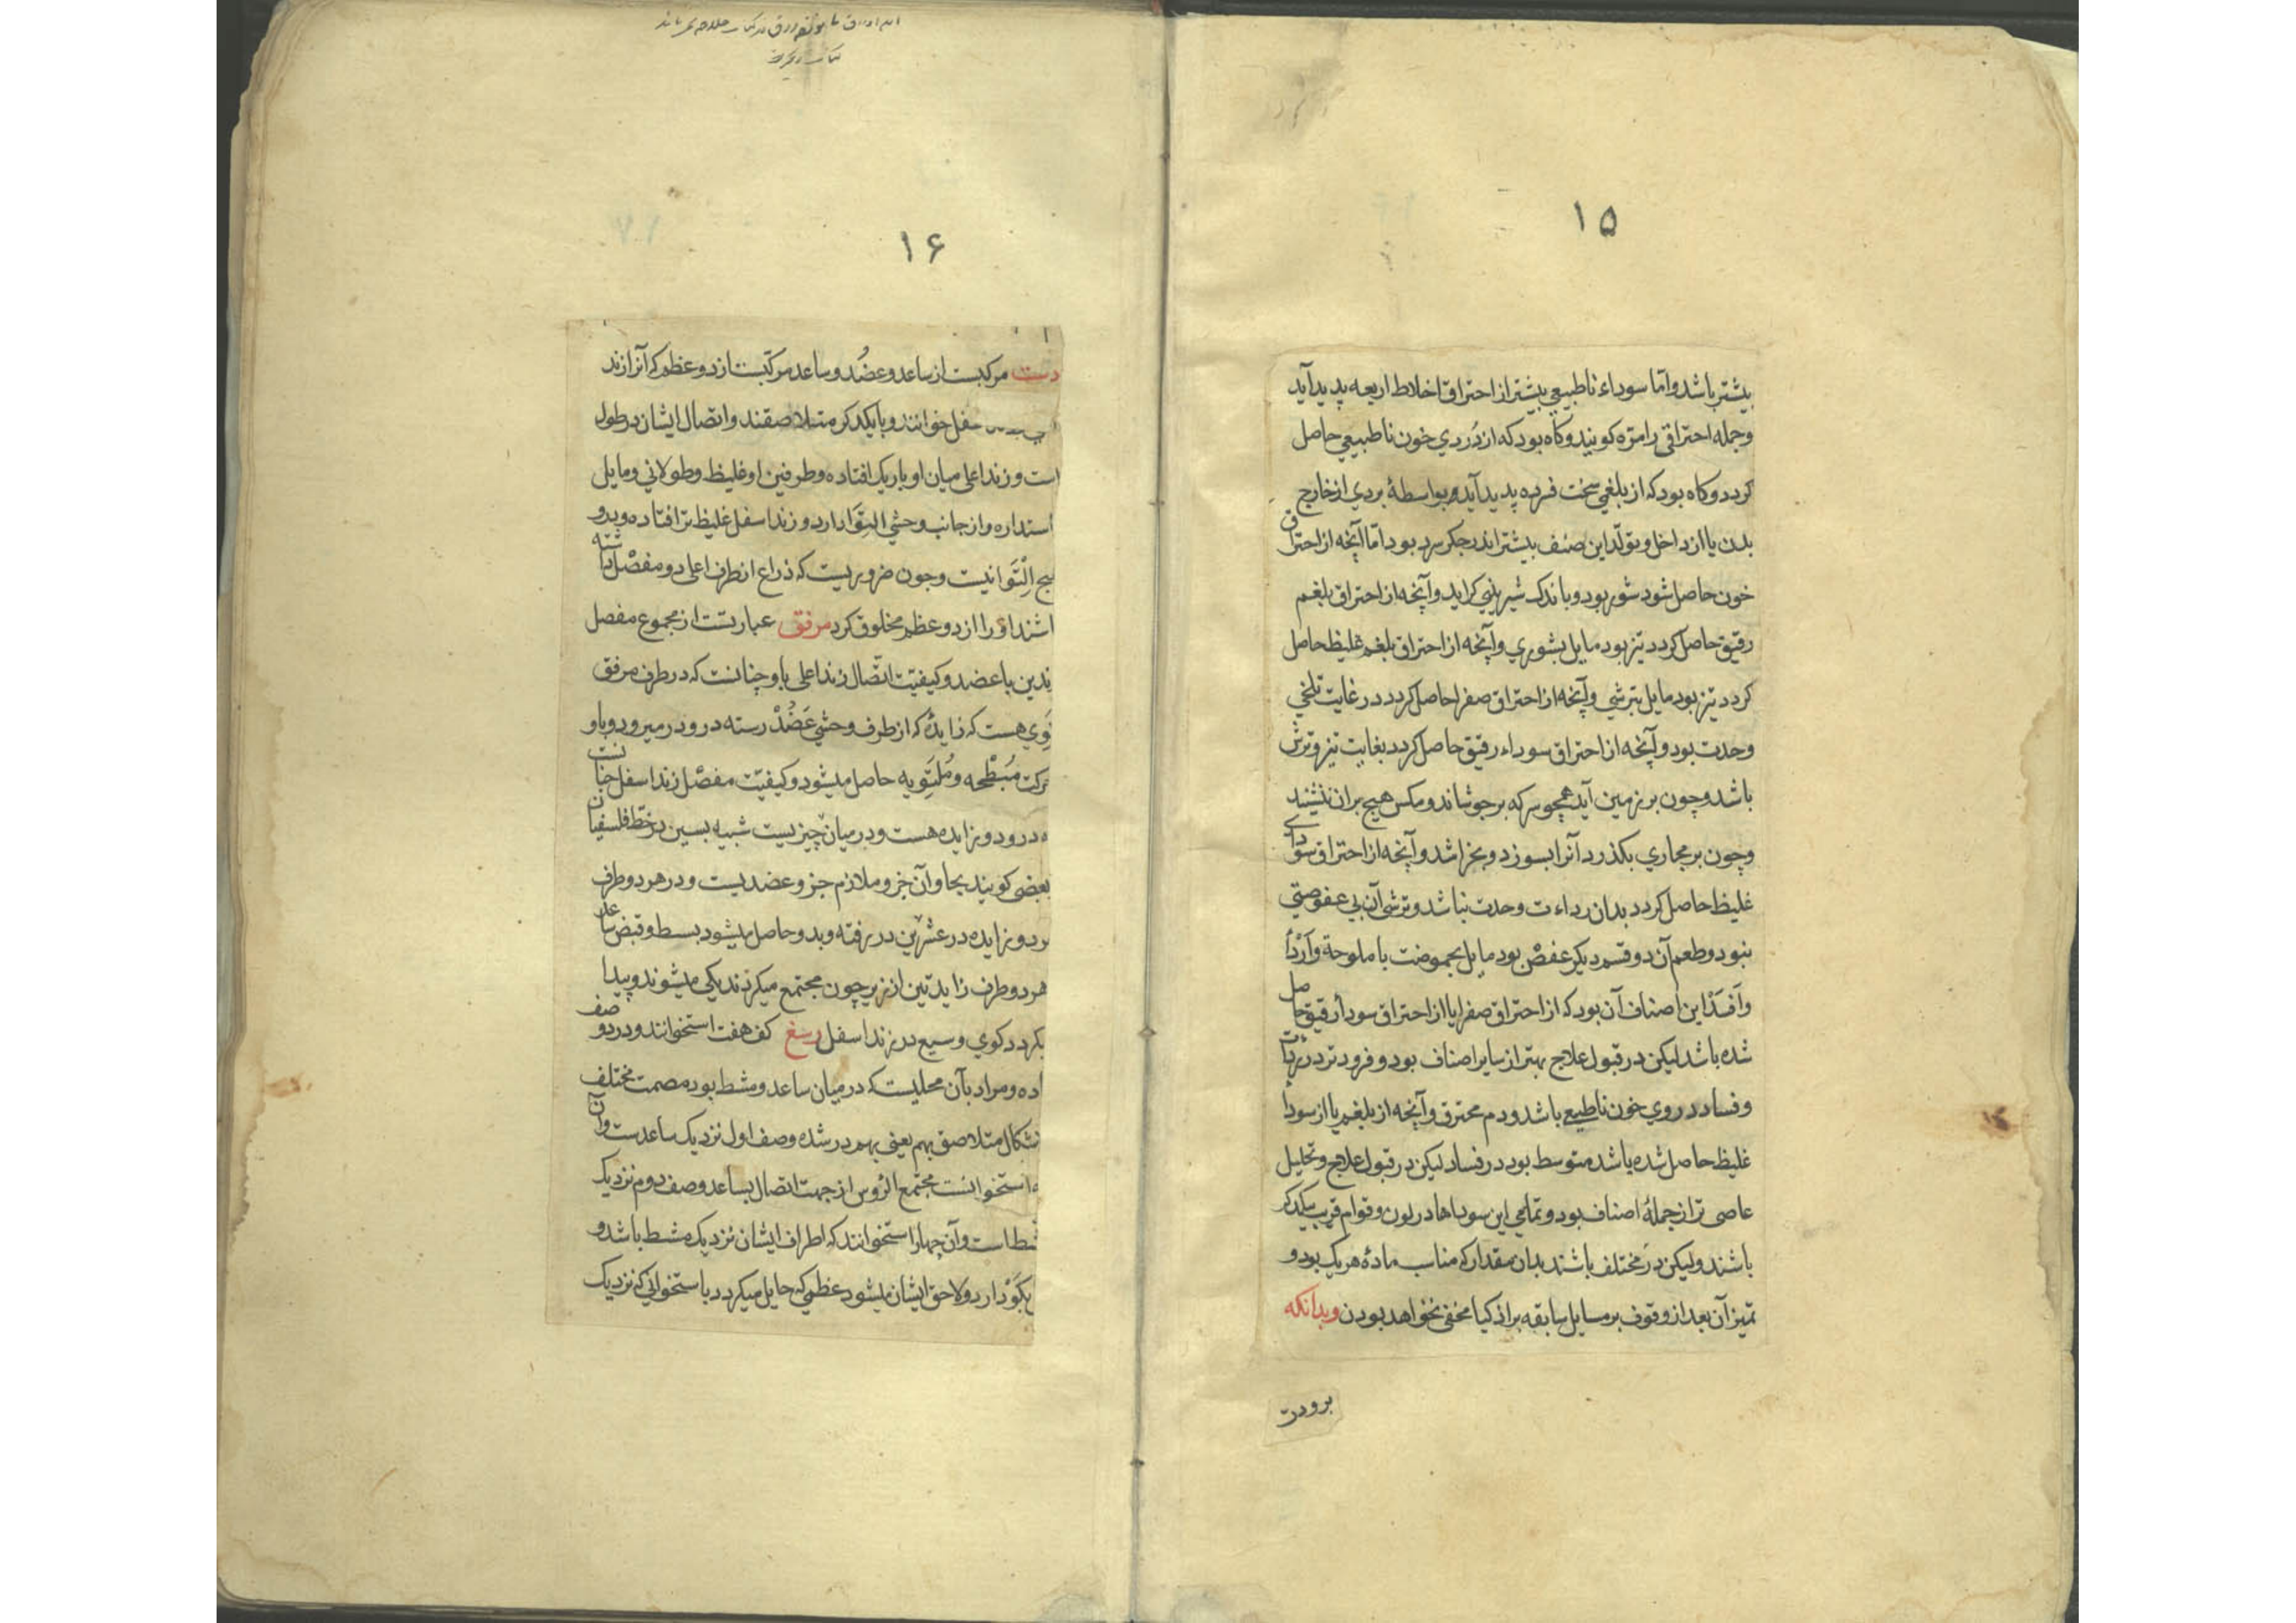 ۱۵
بیشتر باشد و امّا سوداء ناطبیعی بیشتر از احتراق اخلاط اربعه پدید آید
و جمله احتراقی را مرّه کویند و کاه بود که از دُردي خون ناطبیعي حاصل
کردد و کاه بود که از بلغمي سخت فسرده پدید آید و بواسطهٔ بردي از خارج
بدن یا از داخل و تولّد این صنف بیشتر اندر جکر سرد بود امّا آنچه از احتراق
خون حاصل شود شور بود و باندک شیریني کراید و آنچه از احتراق بلغم
رقیق حاصل کردد تیز بود مایل بشوري و آنچه از احتراق بلغم غلیظ حاصل
کردد تیز بود مایل بترشي و آنچه از احتراق صفرا حاصل کردد در غایت تلخي
وحدت بود و آنچه از احتراق سوداء رقیق حاصل کردد بغایت تیز و ترش
باشد و چون بر زمین آید همچو سرکه برجوشاند و مکس هیچ بران ننشیند
و چون بر مجاري بکذرد آنرا بسوزد و بخراشد و آنچه از احتراق سوداي
غلیظ حاصل کردد بدان رداءت وحدت نباشد و ترشي آن بي عفوصتي
نبود و طعم آن دو قسم دیکر عفص بود مایل بحموضت یا ملوحة و اَرْدَأ
و اَفسَد این اصناف آن بود که از احتراق صفرا یا از احتراق سوداء رقیق حاصل
شده باشد لیکن در قبول علاج بهتر از سایر اصناف بود و فرودتر در رداءت
و فساد دردوي خون ناطبیعي باشد و دم محترق و آنچه از بلغم یا از سوداء
غلیظ حاصل شده باشد متوسط بود در فساد لیکن در قبول علاج و تحلیل
عاصی تر از جملهٔ اصناف بود و تمامي این سوداها در لون و قوام قریب بیکدکر
باشند ولیکن در مختلف باشند بدان مقدار که مناسب مادهٔ هر یک بود و
تمیز آن بعد از وقوف بر مسایل سابقه بر اذکیا مخفی نخواهد بودن و بدانکه
برودت
۱۶
دست مرکبست از ساعد و عضُد و ساعد مرکّبست از دو عظم که آنرا زند
سفل خوانند و با یکدکر متلاصقند و اتصال ایشان در طول
است و زند اعلی میان او باریک افتاده و طرفین او غلیظ و طولاني و مایل
استداره و از جانب وحشي التوا دارد و زند اسفل غلیظ تر افتاده و بدو
یچ اِلْتَوا نیست و چون ضروریست که ذراع از طرف اعلی دو مفصل داشته
اشند او را از دو عظم مخلوق کرد مرفق عبارتست از مجموع مفصل
ندین با عضد و کیفیّت اتّصال زند اعلی باو چنانست که در طرف مرفق
کَوي هست که زایدهٔ که از طرف وحشي عَضُدْ رسته درو در میرود و باو
رکت مُبْطِحه و مُلْتَوِیه حاصل میشود و کیفیّت مفصل زند اسفل چنانست
ه درو دو زایده هست و در میان چیزیست شبیه بسین در خط فلسفیان
بعضي کویند بجا و آن جزو ملازم جزو عضدیست و در هر دو طرف
و دو زایده در عشرین در رفته و بدو حاصل میشود بسط و قبض ساعد
هر دو طرف زایدتین از زیر چون مجتمع میکردند یکي میشوند و پیدا
یکردد کوي وسیع در زند اسفل رسغ کف هفت استخوانند و در دو صف
اده و مراد بآن محلیست که در میان ساعد و مشط بود مصمت مختلف
شکال متلاصق بهم یعني بهم در شده و صف اول نزدیک ساعدست و آن
ه استخوانست مجتمع الرؤس از جهت اتصال بساعد و صف دوم نزدیک
شط است و آن چهار استخوانند که اطراف ایشان نزدیک مشط باشد و
یکَوْ دارد و لاحق ایشان میشود عظمي که حایل میکردد با استخواني که نزدیک